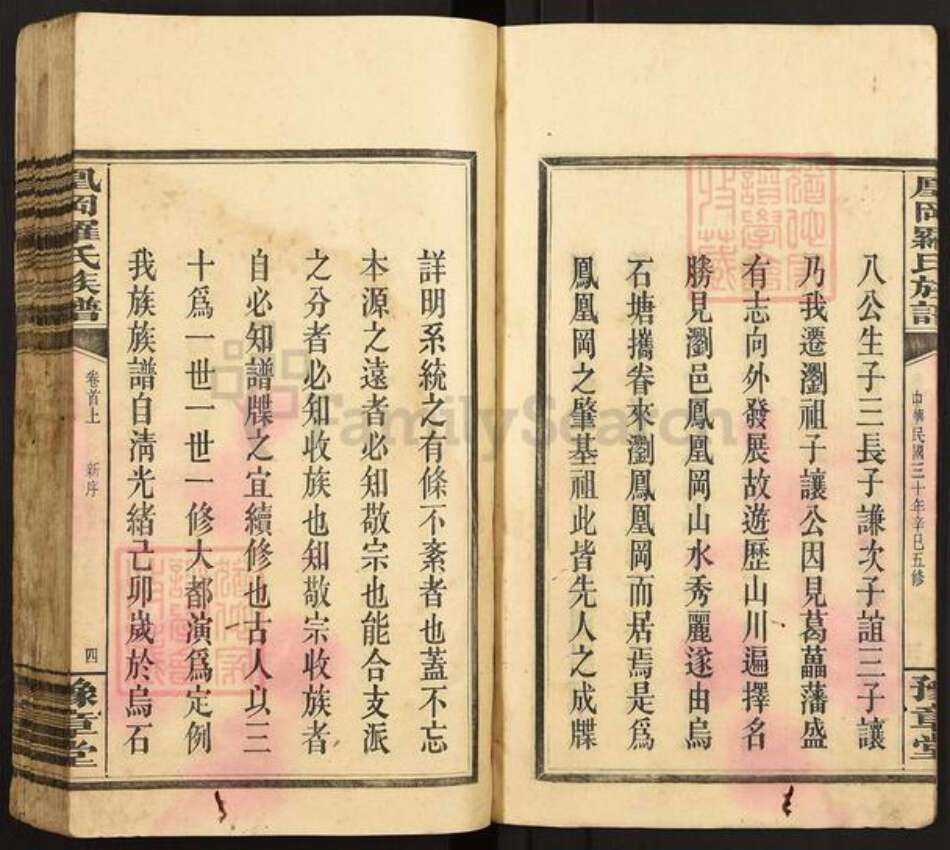 中華民國三十年辛巳五修
豫章堂
八公生子三長子謙次子誼三子讓
乃我遷瀏祖子讓公因見葛藟藩盛
有志向外發展故遊歷山川遍擇名
勝見瀏邑鳳凰岡山水秀麗遂由烏
石塘攜眷來瀏鳳凰岡而居焉是為
鳳凰岡之肇基祖此皆先人之成牒
詳明系統之有條不紊者也蓋不忘
木源之遠者必知敬宗也能合支派
之分者必知收族也知敬宗收族者
自必知譜牒之宜續修也古人以三
十爲一世一世一修大都演爲定例
我族族譜自淸光緒己卯歲於烏石
凰岡羅氏族譜
卷首上
新序
四
豫章堂
FamilySearch